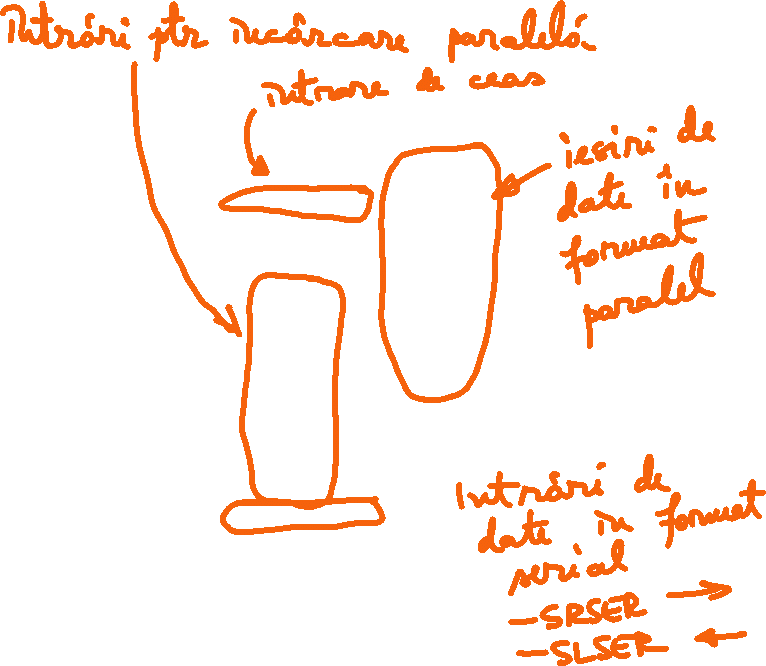 Intrări ptr încărcare paralelă
intrare de ceas
iesiri de
date în
format
paralel
Intrări de
date în format
serial
-SRSER →
-SLSER ←